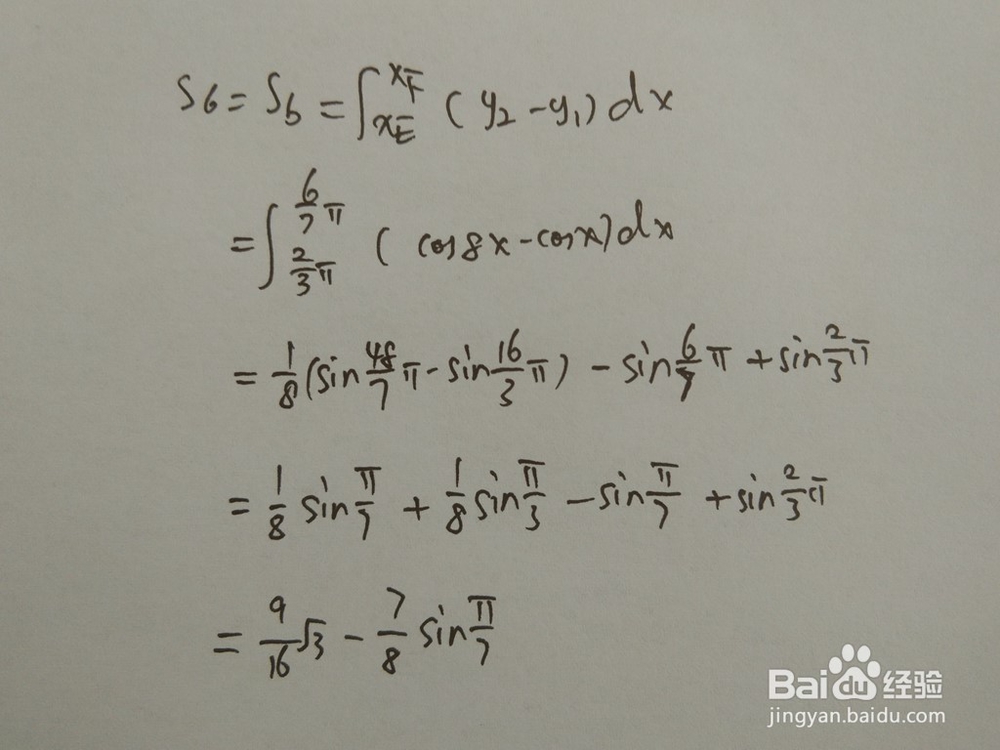 S6 = S6 = ∫_{x_E}^{x_F} (y₂ - y₁) dx
= ∫_{2/3 π}^{6/7 π} (cos8x - cosx) dx
= 1/8 (sin 48/7 π - sin 16/3 π) - sin 6/7 π + sin 2/3 π
= 1/8 sin π/7 + 1/8 sin π/3 - sin π/7 + sin 2/3 π
= 9/16 √3 - 7/8 sin π/7
Baidu经验
jingyan.baidu.com